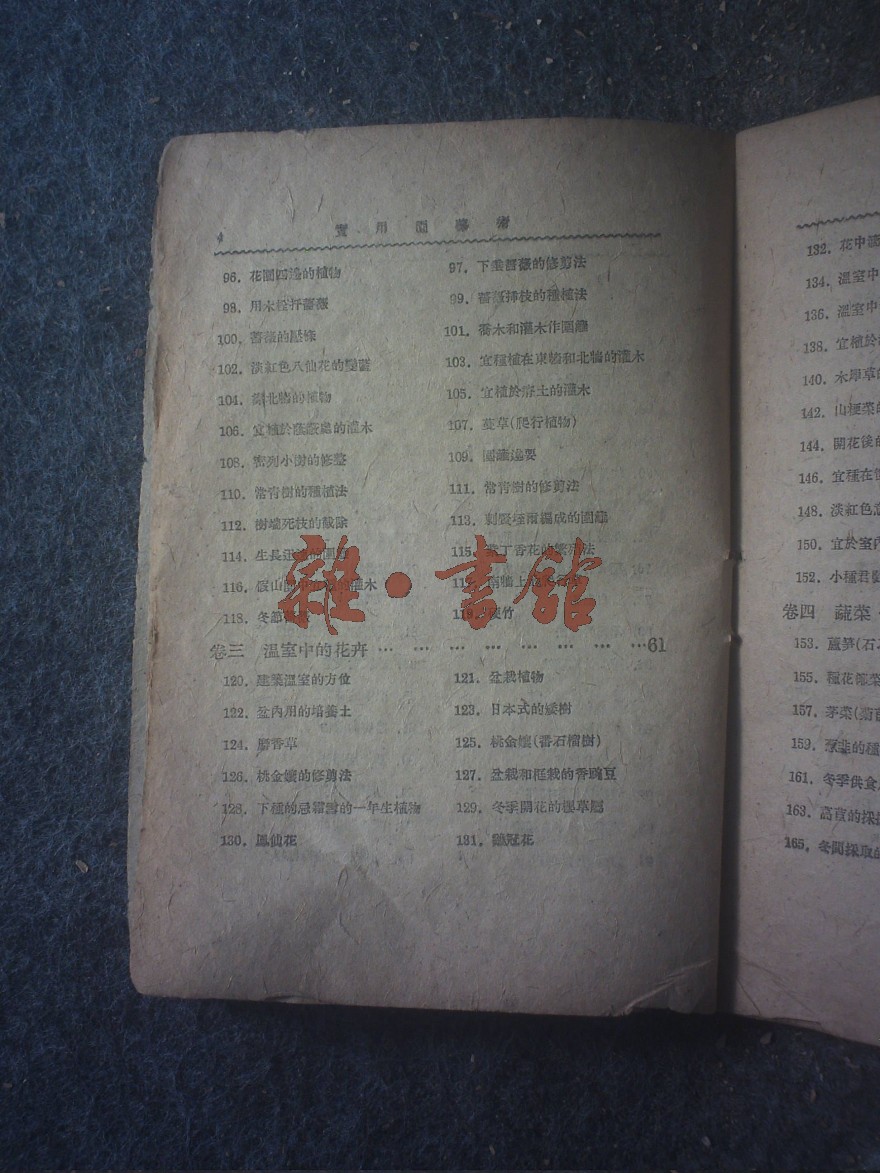 實用園藝術
96. 花園四邊的植物 97. 下垂薔薇的修剪法
98. 用木樁扦薔薇 99. 薔薇揷枝的種植法
100. 薔薇的壓條 101. 喬木和灌木作圍籬
102. 淡紅色八仙花的變藍 103. 宜種植在東牆和北牆的灌木
104. 牆北牆的植物 105. 宜植於瘠土的灌木
106. 宜植於蔭蔽處的灌木 107. 蔓草(爬行植物)
108. 密列小樹的修整 109. 圍籬這要
110. 常青樹的種植法 111. 常青樹的修剪法
112. 樹端死枝的截除 113. 編成的圍籬
114. 生長迅速的圍籬 115. 紫丁香花的繁殖法
116. 假山 灌木 117. 南牆上
118. 冬 119. 竹
卷三 溫室中的花卉 … … … … … … … …61
120. 建築溫室的方位 121. 盆栽植物
122. 盆內用的培養土 123. 日本式的矮樹
124. 麝香草 125. 桃金孃(番石榴樹)
126. 桃金孃的修剪法 127. 盆栽和框栽的香豌豆
128. 下種的忌霜雪的一年生植物 129. 冬季開花的櫻草屬
130. 鳳仙花 131. 雞冠花
雜·書館
132. 花中
134. 溫室中
136. 溫室中
138. 宜植於
140. 木犀草的
142. 山梗菜的
144. 開花後的
146. 宜種在
148. 淡紅色
150. 宜於室內
152. 小種君
卷四 蔬菜
153. 蘆筍(石
155. 種花椰菜
157. 茅菜(
159. 葱韭的種
161. 冬季供食
163. 萵苣的採
165. 冬間採取的